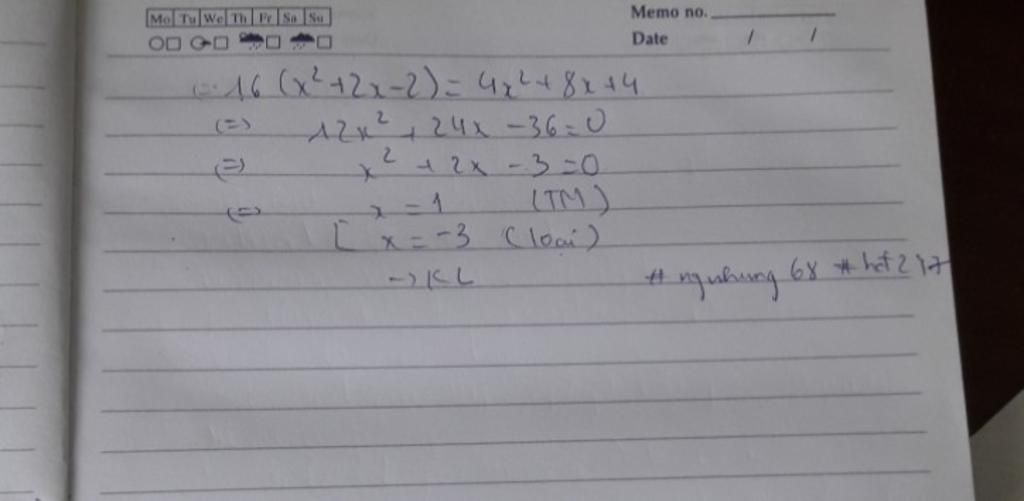 Mo Tu We Th Fr Sa Su
Memo no.
Date / /
(=) 16 (x²+2x-2) = 4x²+8x+4
(=) 12x²+24x-36=0
(=) x²+2x-3=0
(=) x=1 (TM)
[ x=-3 (loại)
-> KL
# ngnhung 68 # hf217